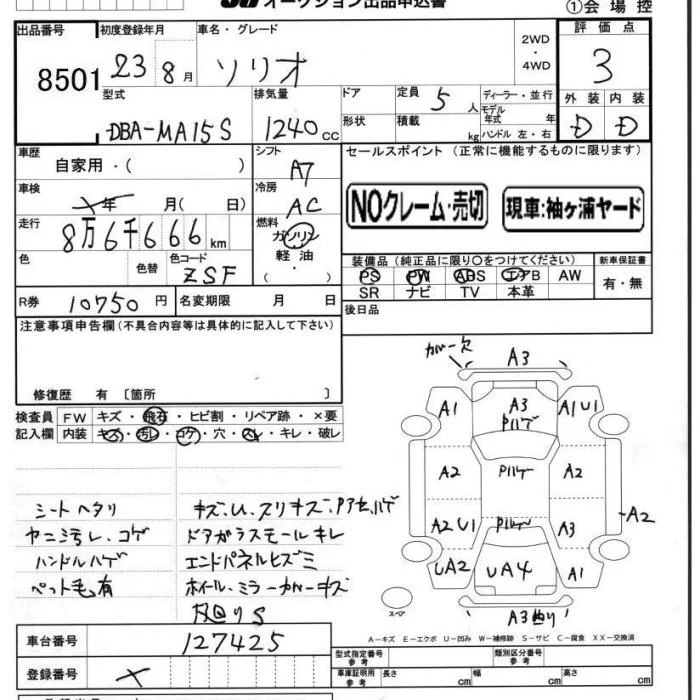 オークション出品申込書
①会場控
出品番号 初度登録年月 車名・グレード 2WD・4WD 評価点
8501 23 8月 ソリオ 3
型式 排気量 ドア 定員 5人 ディーラー・並行 外装 内装
モデル年式 年式
DBA-MA15S 1240cc 形状 積載 kg ハンドル 左・右 D D
車歴 自家用・( ) シフト A7 セールスポイント (正常に機能するものに限ります)
車検 年 月( 日) 冷房 AC
NOクレーム・売切 現車:袖ヶ浦ヤード
走行 8万6千666km 燃料 ガソリン 軽油・( )
色 色替 色コード ZSF
装備品 (純正品に限り○をつけてください) 新車保証書
PS PW ABS エアB AW 有・無
SR ナビ TV 本革
R券 10750円 名変期限 月 日 後日品
注意事項申告欄(不具合内容等は具体的に記入して下さい)
修復歴 有 〔箇所 〕
検査員記入欄 FW キズ・飛石・ヒビ割・リペア跡・×要
内装 キズ・汚れ・コゲ・穴・スレ・キレ・破レ
カバー欠 A3
A1 A3 Pハゲ A1U1
A2 Pハゲ A2
A2U1 Pハゲ A3 A2
UA2 UA4 A1
スペア A3
シートヘタリ
ヤニ汚レ、コゲ
ハンドルハゲ
ペット毛有
キズ、U、スリキズ、
ドアガラスモールキレ
エンドパネルヒズミ
ホイール、ミラーカバーキズ
A-キズ E-エクボ U-凹み W-補修跡 S-サビ C-腐食 XX-交換済
車台番号 127425
型式指定番号 参考 類別区分番号 参考
登録番号
車庫証明用 参考 長さ cm 幅 cm 高さ cm